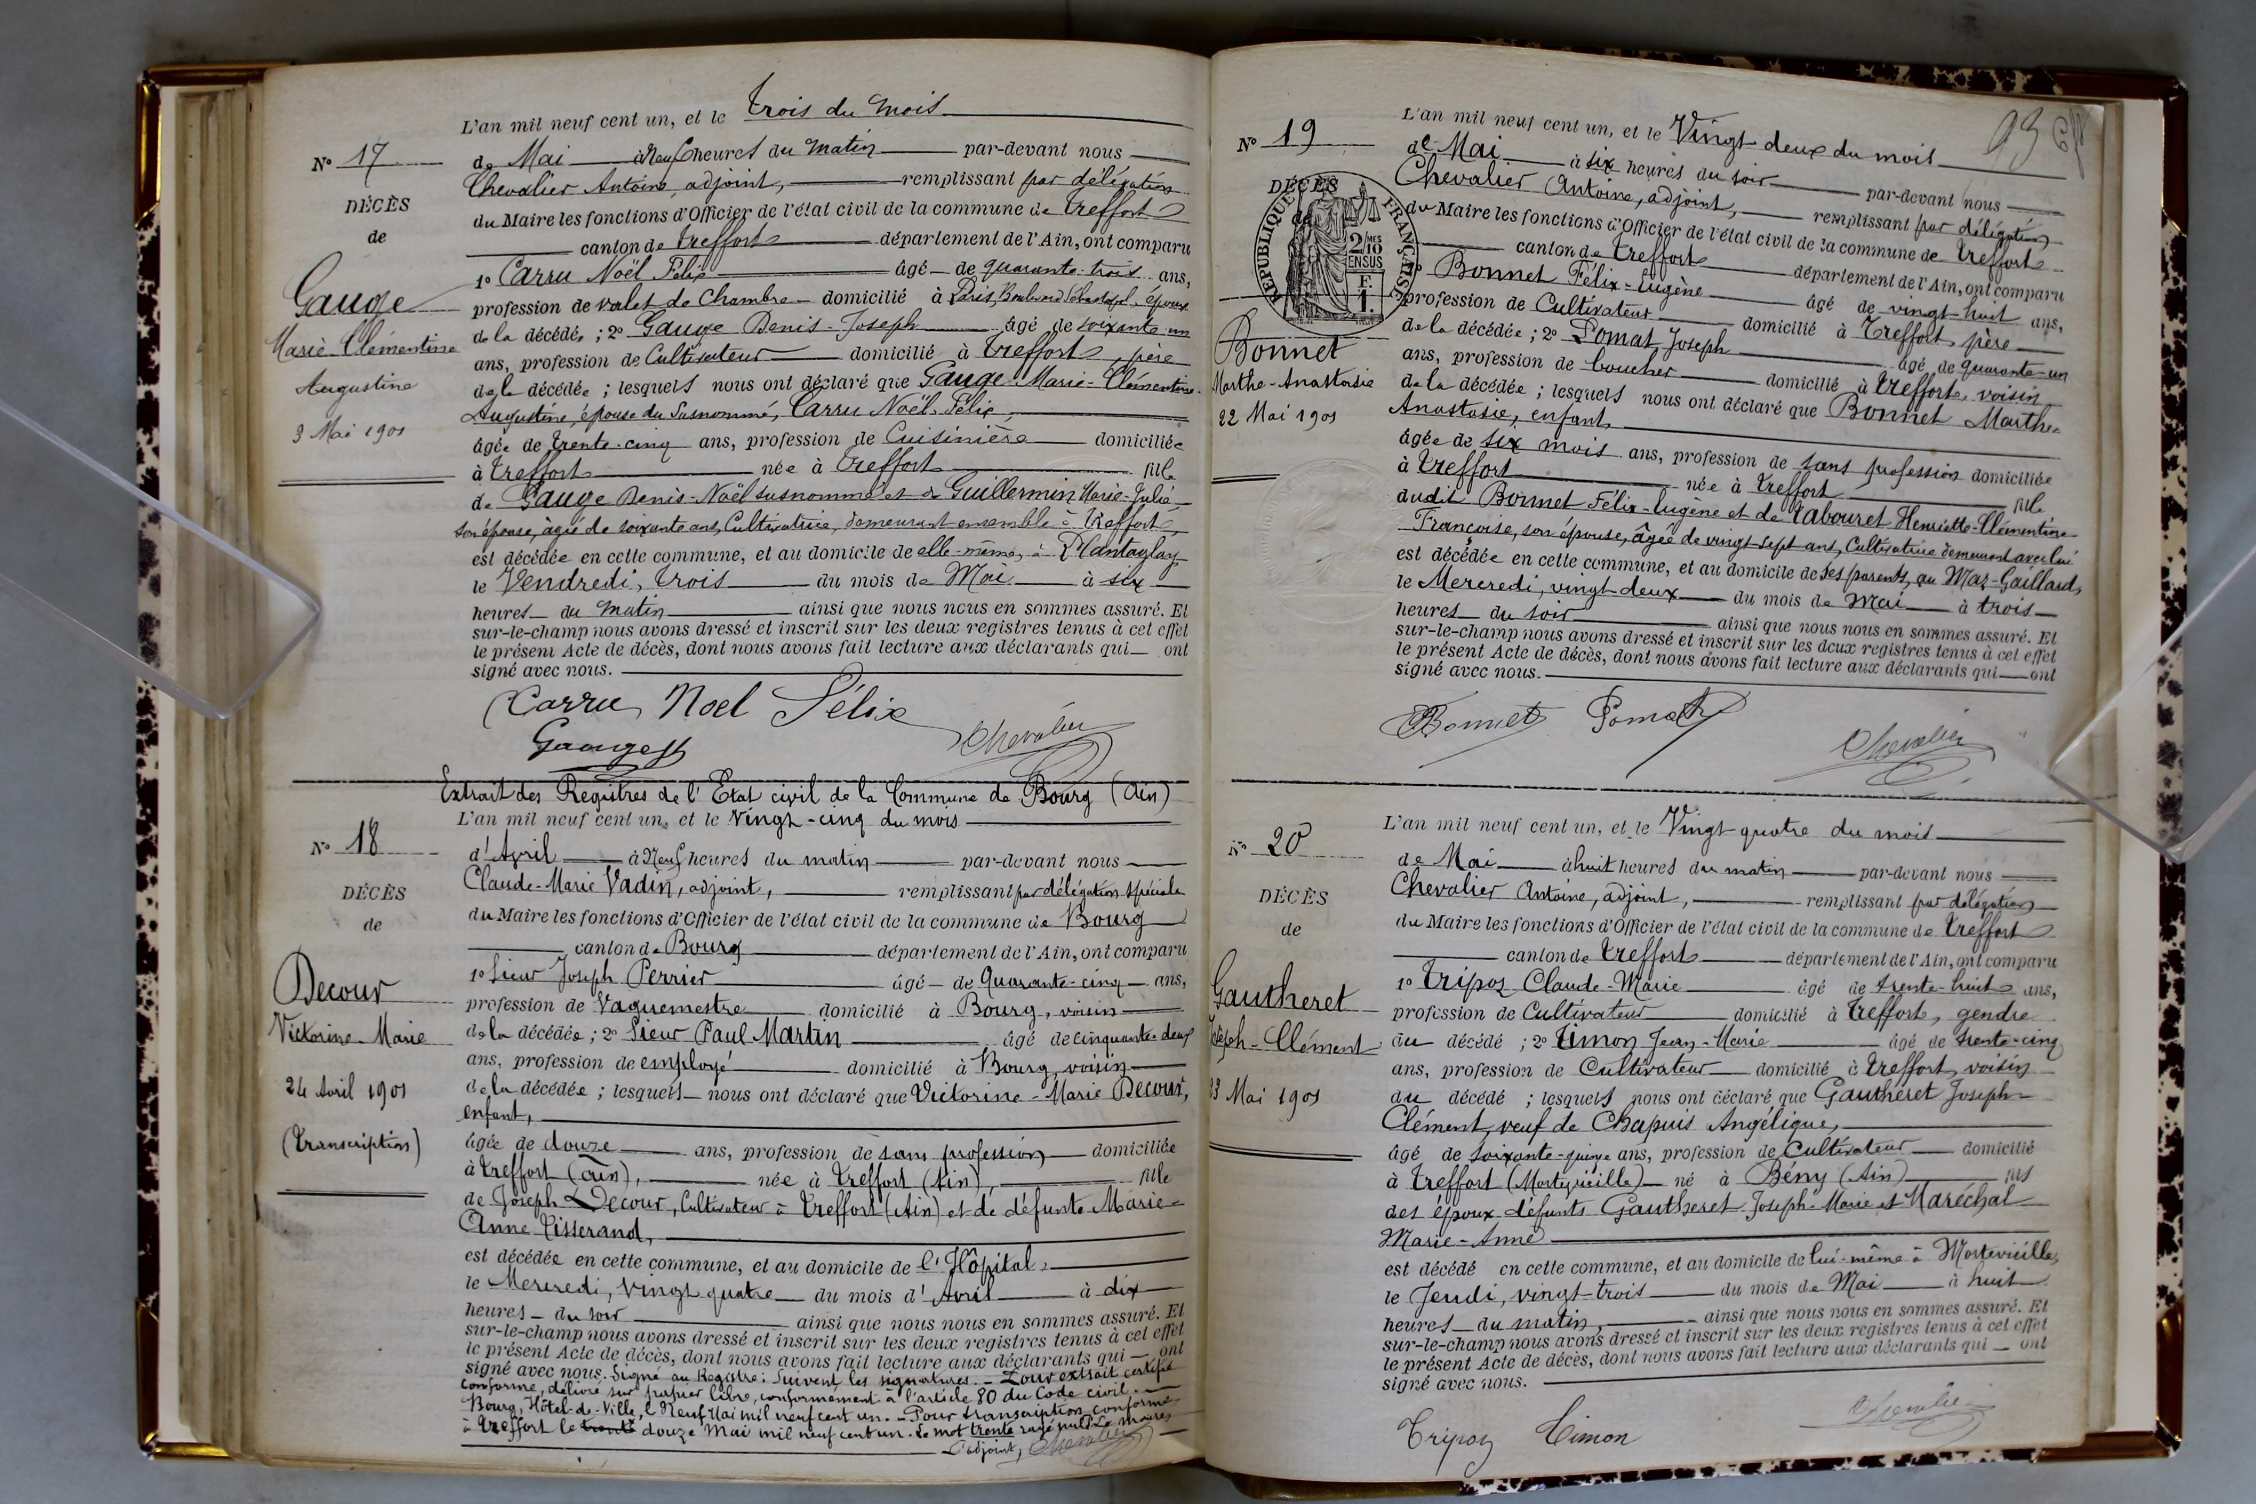 L'an mil neuf cent un, et le trois du mois
No 17
de Mai à Neuf heures du matin par-devant nous
Chevalier Antoine, adjoint, remplissant par délégation
DÉCÈS
du Maire les fonctions d'Officier de l'état civil de la commune de Treffort
de
canton de Treffort département de l'Ain, ont comparu
Gauge
1o Carru Noël Félix âgé de quarante-trois ans,
profession de valet de Chambre domicilié à Paris, Boulevard Sébastopol, époux
Marie-Clémentine
de la décédée ; 2o Gauge Denis-Joseph âgé de soixante-un
ans, profession de Cultivateur domicilié à Treffort, père
Augustine
de la décédée ; lesquels nous ont déclaré que Gauge Marie-Clémentine
Augustine, épouse du susnommé, Carru Noël-Félix,
3 Mai 1901
âgée de trente-cinq ans, profession de Cuisinière domiciliée
à Treffort née à Treffort fille
de Gauge Denis-Noël susnommé et de Guillermin Marie-Julie
son épouse, âgée de soixante ans, Cultivatrice, demeurant ensemble à Treffort,
est décédée en cette commune, et au domicile de elle-même, à
le Vendredi, trois du mois de Mai à six
heures du matin ainsi que nous nous en sommes assuré. Et
sur-le-champ nous avons dressé et inscrit sur les deux registres tenus à cet effet
le présent Acte de décès, dont nous avons fait lecture aux déclarants qui ont
signé avec nous.
Carru Noel Félix
Gauge Chevalier
Extrait des Registres de l'Etat civil de la Commune de Bourg (Ain)
L'an mil neuf cent un, et le Vingt-cinq du mois
No 18
d'Avril à Neuf heures du matin par-devant nous
Claude-Marie Vadin, adjoint, remplissant par délégation spéciale
DÉCÈS
du Maire les fonctions d'Officier de l'état civil de la commune de Bourg
de
canton de Bourg département de l'Ain, ont comparu
Decour
1o Sieur Joseph Perrier âgé de Quarante-cinq ans,
profession de Vaguemestre domicilié à Bourg, voisin
Victorine-Marie
de la décédée ; 2o Sieur Paul Martin âgé de cinquante-deux
ans, profession de employé domicilié à Bourg, voisin
24 Avril 1901
de la décédée ; lesquels nous ont déclaré que Victorine-Marie Decour,
enfant,
(Transcription)
âgée de douze ans, profession de sans profession domiciliée
à Treffort (Ain), née à Treffort (Ain), fille
de Joseph Decour, Cultivateur à Treffort (Ain) et de défunte Marie-
Anne Tisserand,
est décédée en cette commune, et au domicile de l'Hôpital,
le Mercredi, Vingt quatre du mois d'Avril à dix
heures du soir ainsi que nous nous en sommes assuré. Et
sur-le-champ nous avons dressé et inscrit sur les deux registres tenus à cet effet
le présent Acte de décès, dont nous avons fait lecture aux déclarants qui ont
signé avec nous. Signé au Registre : Suivent les signatures. - Pour extrait certifié
conforme, délivré sur papier libre, conformément à l'article 80 du Code civil.
Bourg, Hôtel-de-Ville, le Neuf Mai mil neuf cent un. - Pour transcription conforme
à Treffort le trente douze Mai mil neuf cent un. Le mot trente rayé nul. Le maire,
L'adjoint, Chevalier
93
L'an mil neuf cent un, et le Vingt-deux du mois
No 19
de Mai à six heures du soir par-devant nous
Chevalier Antoine, adjoint, remplissant par délégation
DÉCÈS
de
du Maire les fonctions d'Officier de l'état civil de la commune de Treffort
RÉPUBLIQUE FRANÇAISE
2/10MES
EN SUS
F.
1.
canton de Treffort département de l'Ain, ont comparu
1o Bonnet Félix-Eugène âgé de vingt-huit ans,
profession de Cultivateur domicilié à Treffort, père
Bonnet
de la décédée ; 2o Pomat Joseph âgé de quarante-un
ans, profession de boucher domicilié à Treffort, voisin
Marthe-Anastasie
de la décédée ; lesquels nous ont déclaré que Bonnet Marthe-
Anastasie, enfant,
22 Mai 1901
âgée de six mois ans, profession de sans profession domiciliée
à Treffort née à Treffort fille
dudit Bonnet Félix-Eugène et de Tabouret Henriette-Clémentine-
Françoise, son épouse, âgée de vingt-sept ans, Cultivatrice demeurant avec lui
est décédée en cette commune, et au domicile de ses parents, au Maz-Gaillard,
le Mercredi, vingt-deux du mois de Mai à trois
heures du soir ainsi que nous nous en sommes assuré. Et
sur-le-champ nous avons dressé et inscrit sur les deux registres tenus à cet effet
le présent Acte de décès, dont nous avons fait lecture aux déclarants qui ont
signé avec nous.
Bonnet Pomat
Chevalier
L'an mil neuf cent un, et le Vingt-quatre du mois
No 20
de Mai à huit heures du matin par-devant nous
Chevalier Antoine, adjoint, remplissant par délégation
DÉCÈS
du Maire les fonctions d'Officier de l'état civil de la commune de Treffort
de
canton de Treffort département de l'Ain, ont comparu
Gautheret
1o Tripoz Claude-Marie âgé de trente-huit ans,
profession de Cultivateur domicilié à Treffort, gendre
Joseph-Clément
du décédé ; 2o Timon Jean-Marie âgé de trente-cinq
ans, profession de Cultivateur domicilié à Treffort, voisin
23 Mai 1901
du décédé ; lesquels nous ont déclaré que Gautheret Joseph-
Clément, veuf de Chapuis Angélique,
âgé de soixante-quinze ans, profession de Cultivateur domicilié
à Treffort (Montevieille) né à Bény (Ain) fils
des époux défunts Gautheret Joseph-Marie et Maréchal
Marie-Anne
est décédé en cette commune, et au domicile de lui-même à Mortevieille,
le Jeudi, vingt-trois du mois de Mai à huit
heures du matin, ainsi que nous nous en sommes assuré. Et
sur-le-champ nous avons dressé et inscrit sur les deux registres tenus à cet effet
le présent Acte de décès, dont nous avons fait lecture aux déclarants qui ont
signé avec nous.
Chevalier
Tripoz Timon